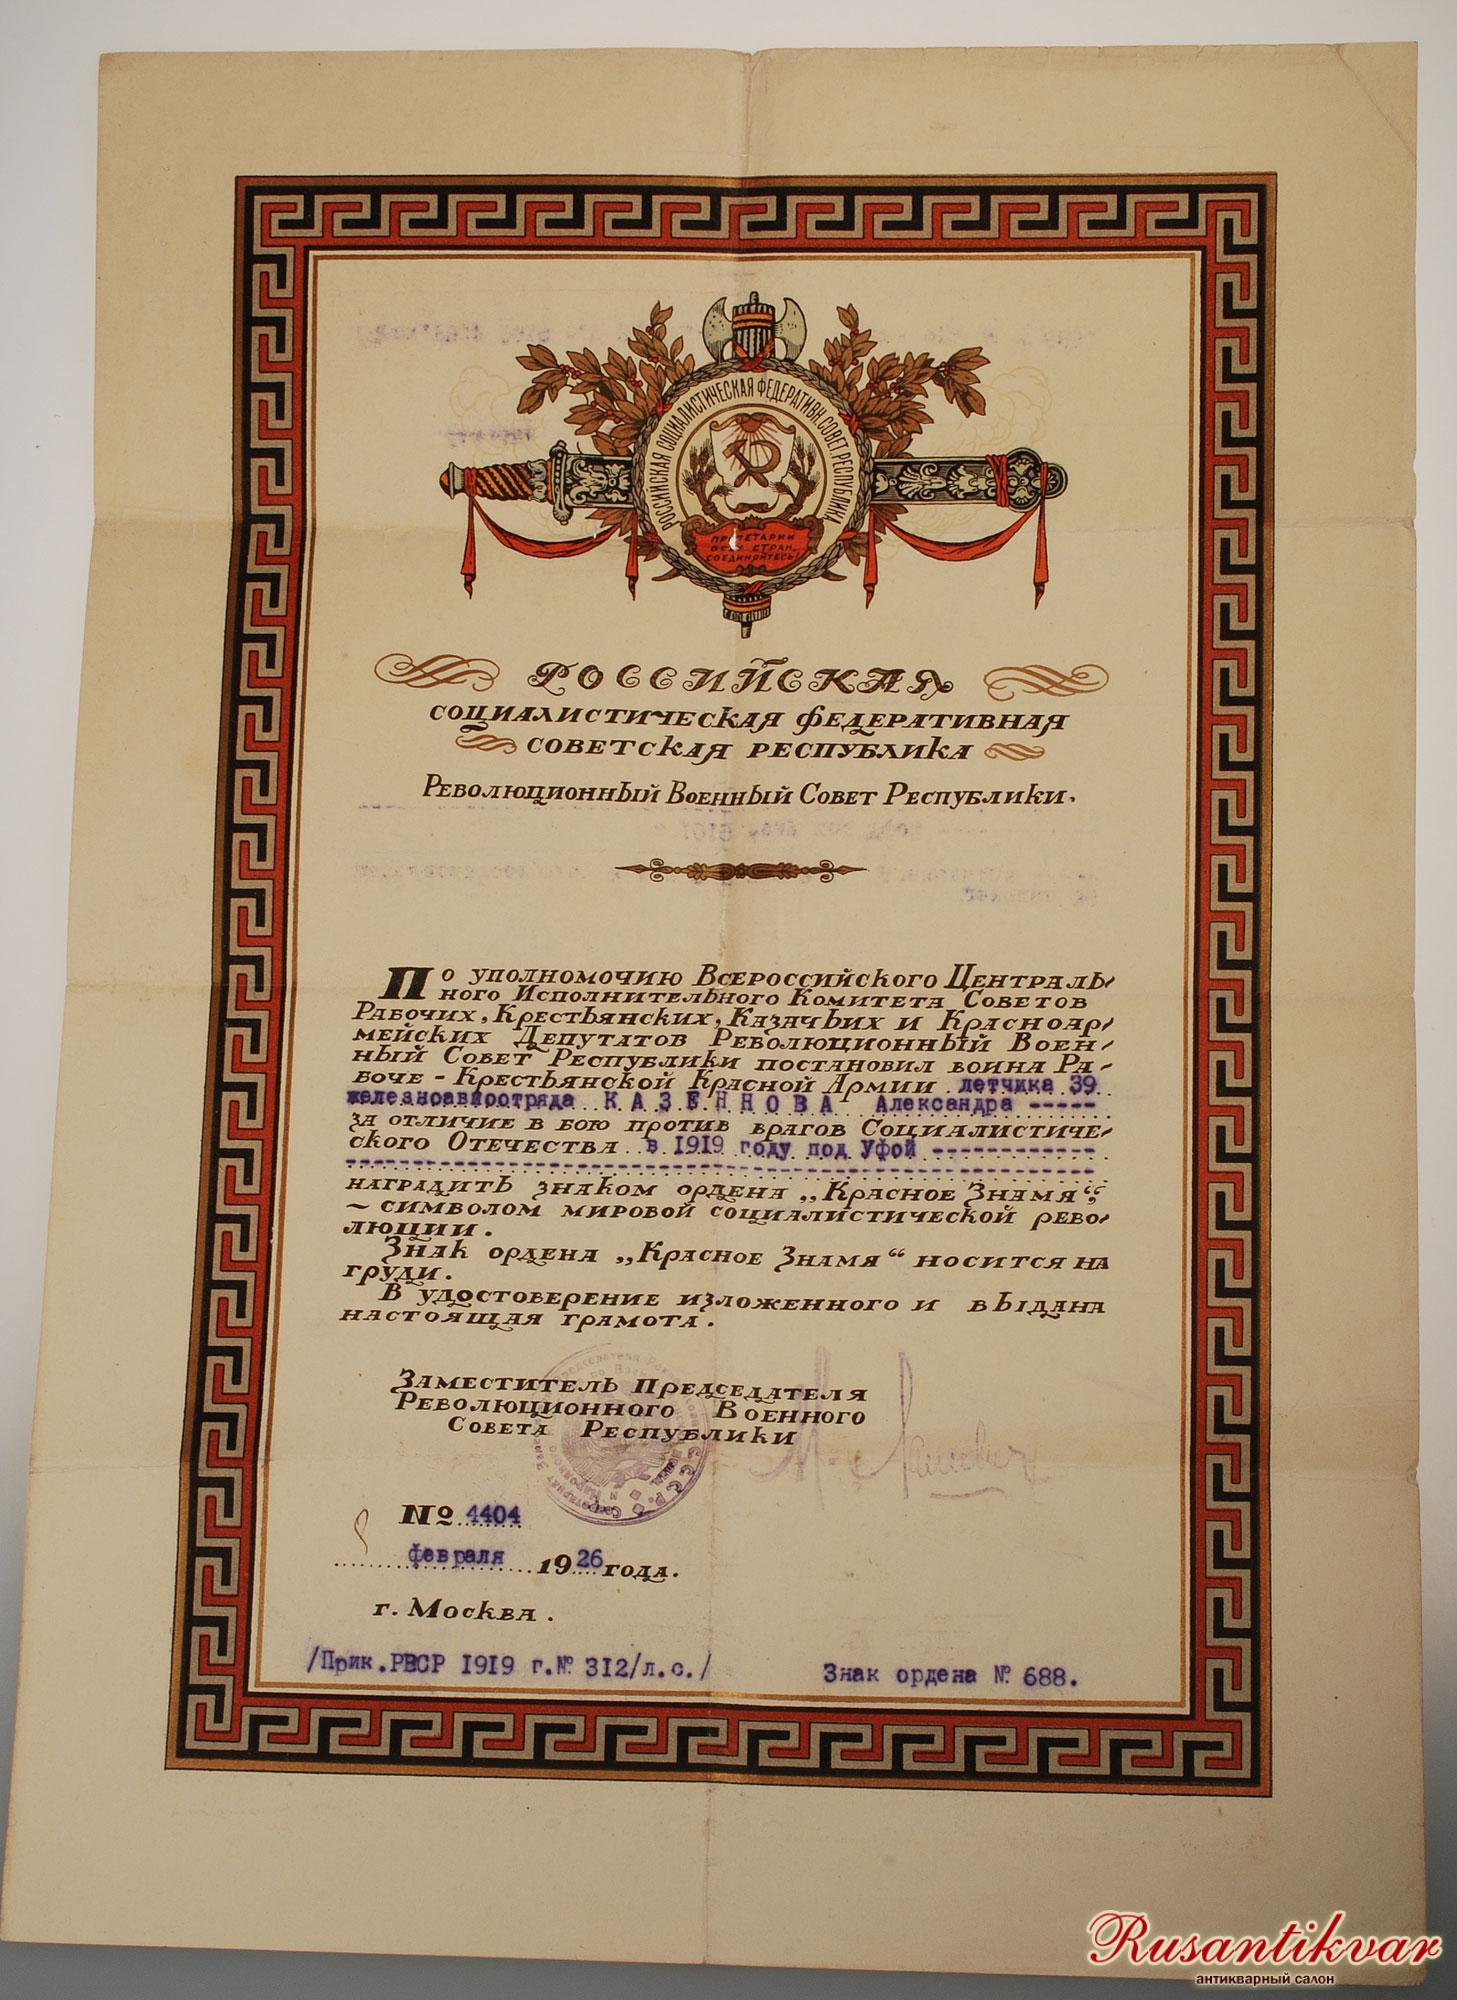 РОССИЙСКАЯ СОЦИАЛИСТИЧЕСКАЯ ФЕДЕРАТИВН. СОВЕТ. РЕСПУБЛИКА
ПРОЛЕТАРИИ
ВСЕХ СТРАН,
СОЕДИНЯЙТЕСЬ!
РОССИЙСКАЯ
СОЦИАЛИСТИЧЕСКАЯ ФЕДЕРАТИВНАЯ
СОВЕТСКАЯ РЕСПУБЛИКА
РЕВОЛЮЦИОННЫЙ ВОЕННЫЙ СОВЕТ РЕСПУБЛИКИ.
ПО УПОЛНОМОЧИЮ ВСЕРОССИЙСКОГО ЦЕНТРАЛЬ-
НОГО ИСПОЛНИТЕЛЬНОГО КОМИТЕТА СОВЕТОВ
РАБОЧИХ, КРЕСТЬЯНСКИХ, КАЗАЧЬИХ И КРАСНОАР-
МЕЙСКИХ ДЕПУТАТОВ РЕВОЛЮЦИОННЫЙ ВОЕН-
НЫЙ СОВЕТ РЕСПУБЛИКИ ПОСТАНОВИЛ ВОИНА РА-
БОЧЕ-КРЕСТЬЯНСКОЙ КРАСНОЙ АРМИИ летчика 39
железноавиоотряда КАЗЕННОВА Александра -----
ЗА ОТЛИЧИЕ В БОЮ ПРОТИВ ВРАГОВ СОЦИАЛИСТИЧЕ-
СКОГО ОТЕЧЕСТВА в 1919 году под Уфой ------------
НАГРАДИТЬ ЗНАКОМ ОРДЕНА „КРАСНОЕ ЗНАМЯ“
- СИМВОЛОМ МИРОВОЙ СОЦИАЛИСТИЧЕСКОЙ РЕВО-
ЛЮЦИИ.
ЗНАК ОРДЕНА „КРАСНОЕ ЗНАМЯ“ НОСИТСЯ НА
ГРУДИ.
В УДОСТОВЕРЕНИЕ ИЗЛОЖЕННОГО И ВЫДАНА
НАСТОЯЩАЯ ГРАМОТА.
ЗАМЕСТИТЕЛЬ ПРЕДСЕДАТЕЛЯ
РЕВОЛЮЦИОННОГО ВОЕННОГО
СОВЕТА РЕСПУБЛИКИ
№ 4404
февраля 1926 ГОДА.
г. МОСКВА.
/Прик.РВСР 1919 г.№ 312/л.с./ Знак ордена № 688.
Rusantikvar
антикварный салон